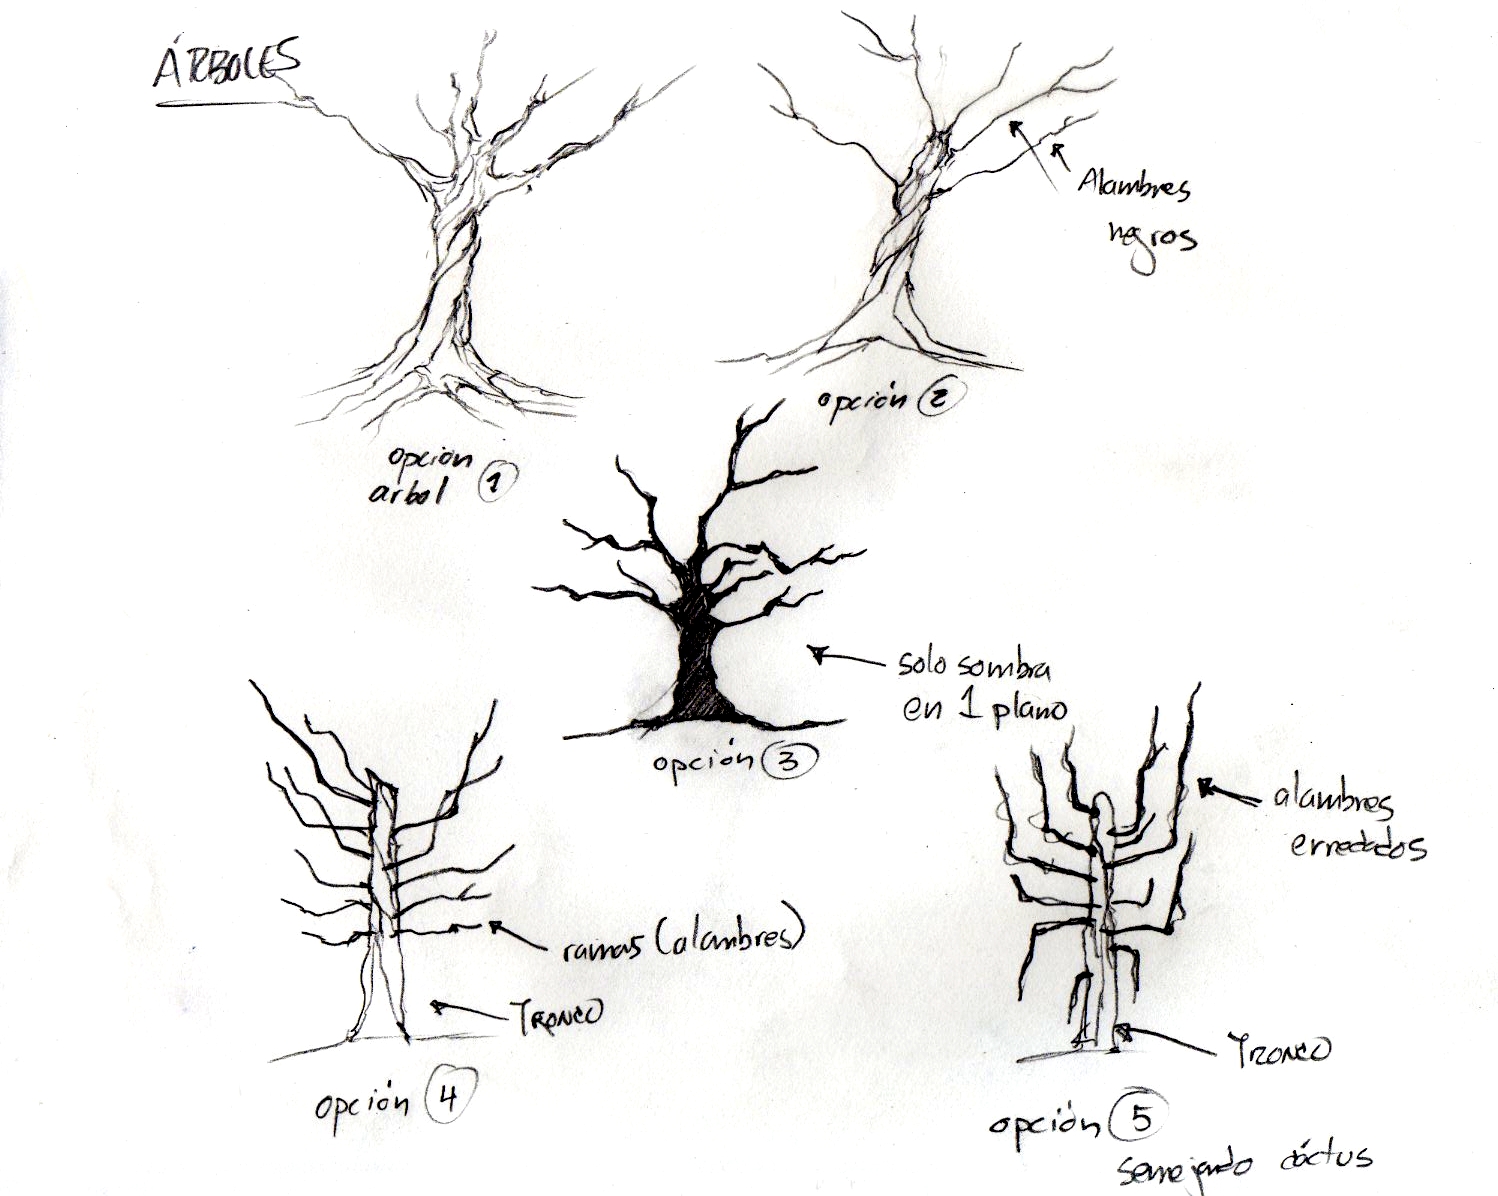 ÁRBOLES
Alambres
negros
opción 2
opción
arbol 1
solo sombra
en 1 plano
opción 3
alambres
erredados
ramas (alambres)
TRONCO
TRONCO
opción 4
opción 5
semejando cáctus